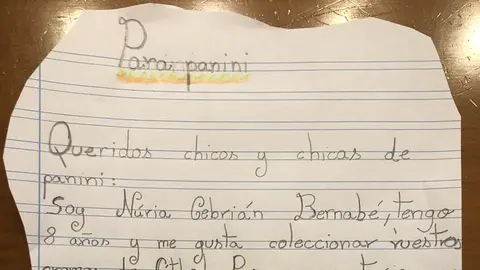 Para panini
Queridos chicos y chicas de
panini:
Soy Núria Cebrián Bernabé, tengo
8 años y me gusta coleccionar vuestros